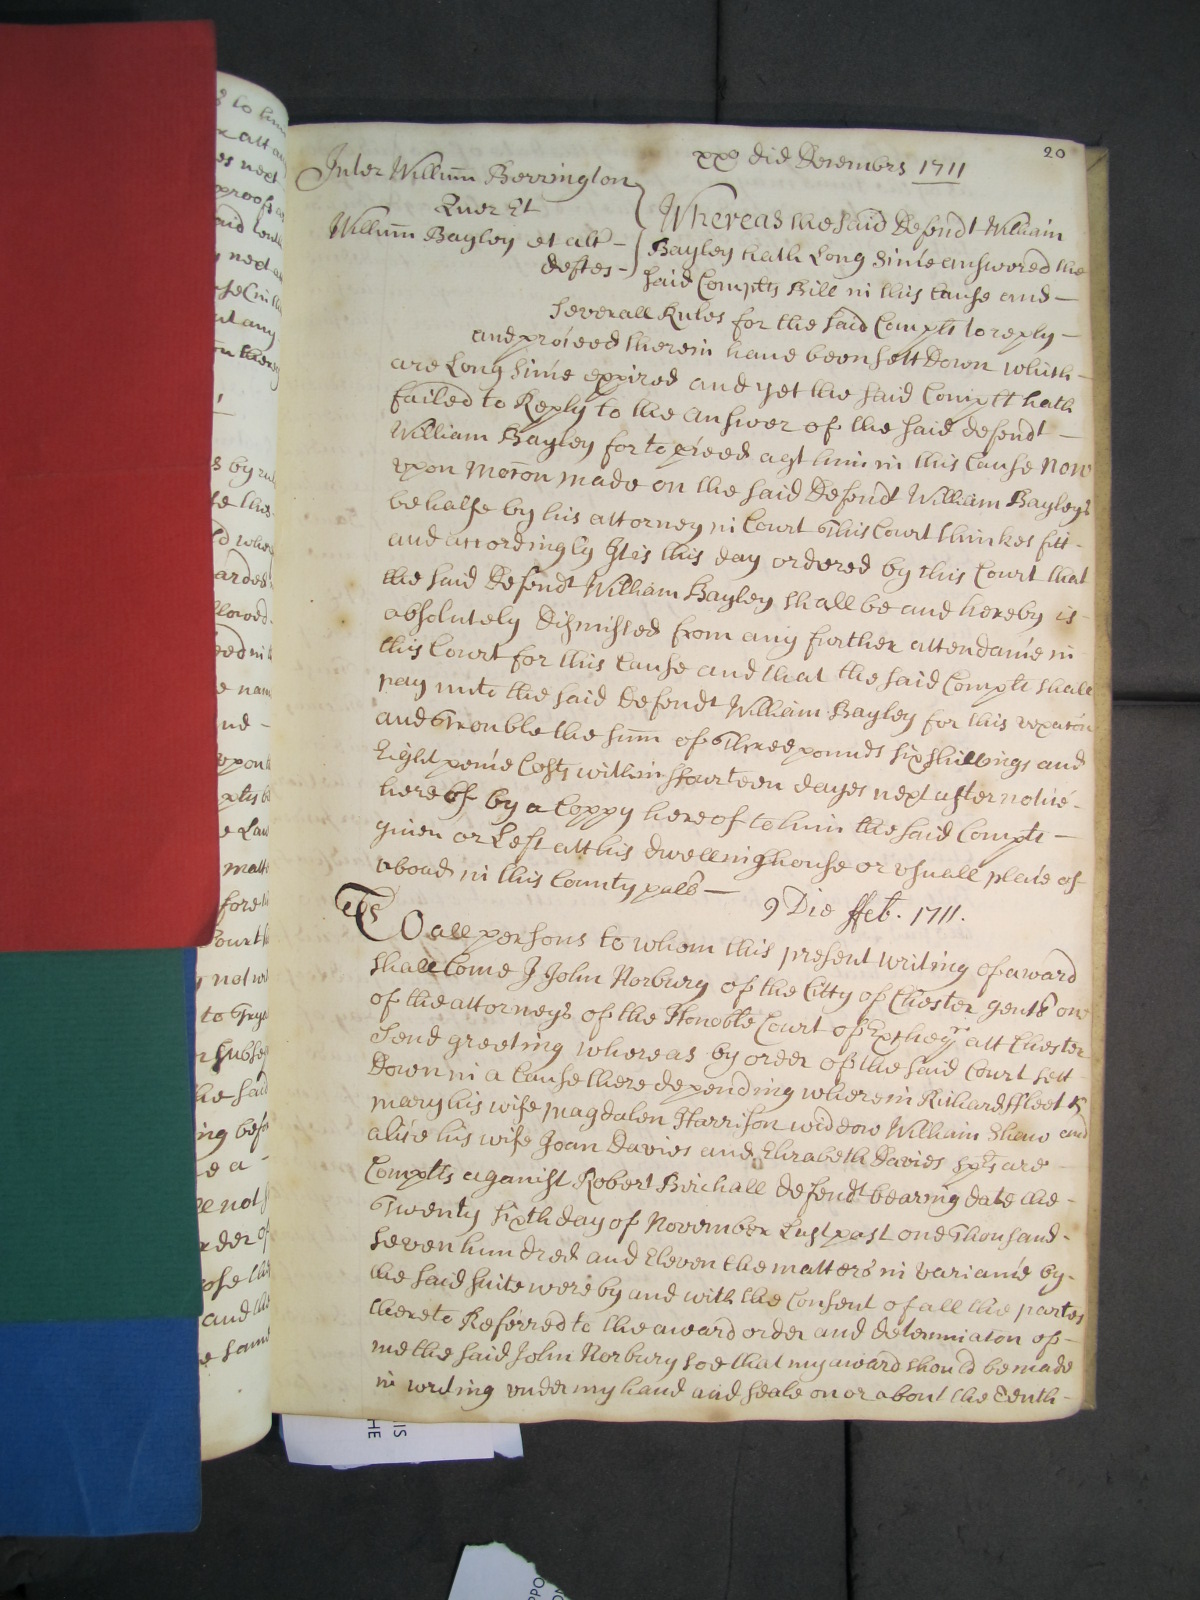 20
xxo die Decembrs 1711
Inter Willum Berrington
Quer Et
Willum Bayley et alt –
deftes –
Whereas the said Defendt William
Bayley hath Long Since answered the
said Complts Bill in this Cause and —
severall Rules for the said Complt to reply —
and proceed therein have been sett Down which –
are Long since expired and yet the said Complt hath
failed to Reply to the answer of the said defendt —
William Bayley for to pceed agt him in this Cause Now
upon Mocon made on the said Defendt William Bayleys
behalfe by his attorney in Court This Court thinkes fitt –
and accordingly Itis this day ordered by this Court that
the said Defendt William Bayley shall be and hereby is –
absolutely Dismissed from any further attendance in
this Court for this Cause and that the said Complt shall
pay unto the said Defendt William Bayley for his vexacon
and Trouble the sum of Three pounds six shillings and
Eight pence Costs within ffourteen dayes next after notice –
hereof by a Coppy hereof to him the said Complt —
given or Left att his dwellinghouse or usuall place of
aboad in this County
9 Die ffeb. 1711.
To all persons to whom this present writing of award
shall Come I John Norbury of the Citty of Chester gent one
of the attorneys of the Honoble Court of Excheqr att Chester
send greeting whereas by order of the said Court sett
Down in a Cause there depending wherein Richard ffleet &
mary his wife magdalen Harrison widdow William Shaw and
alice his wife Joan Davies and Elizabeth Davies spsts are –
Complts against Robert Birchall defendt bearing date the –
Twenty sixth day of November Last past one Thousand –
seven hundred and Eleven the matters in variance by –
the said suite were by and with the Consent of all the partes
thereto Referred to the award order and determinacon of –
me the said John Norbury soe that my award should be made
in writing under my hand and seale on or about the Tenth –